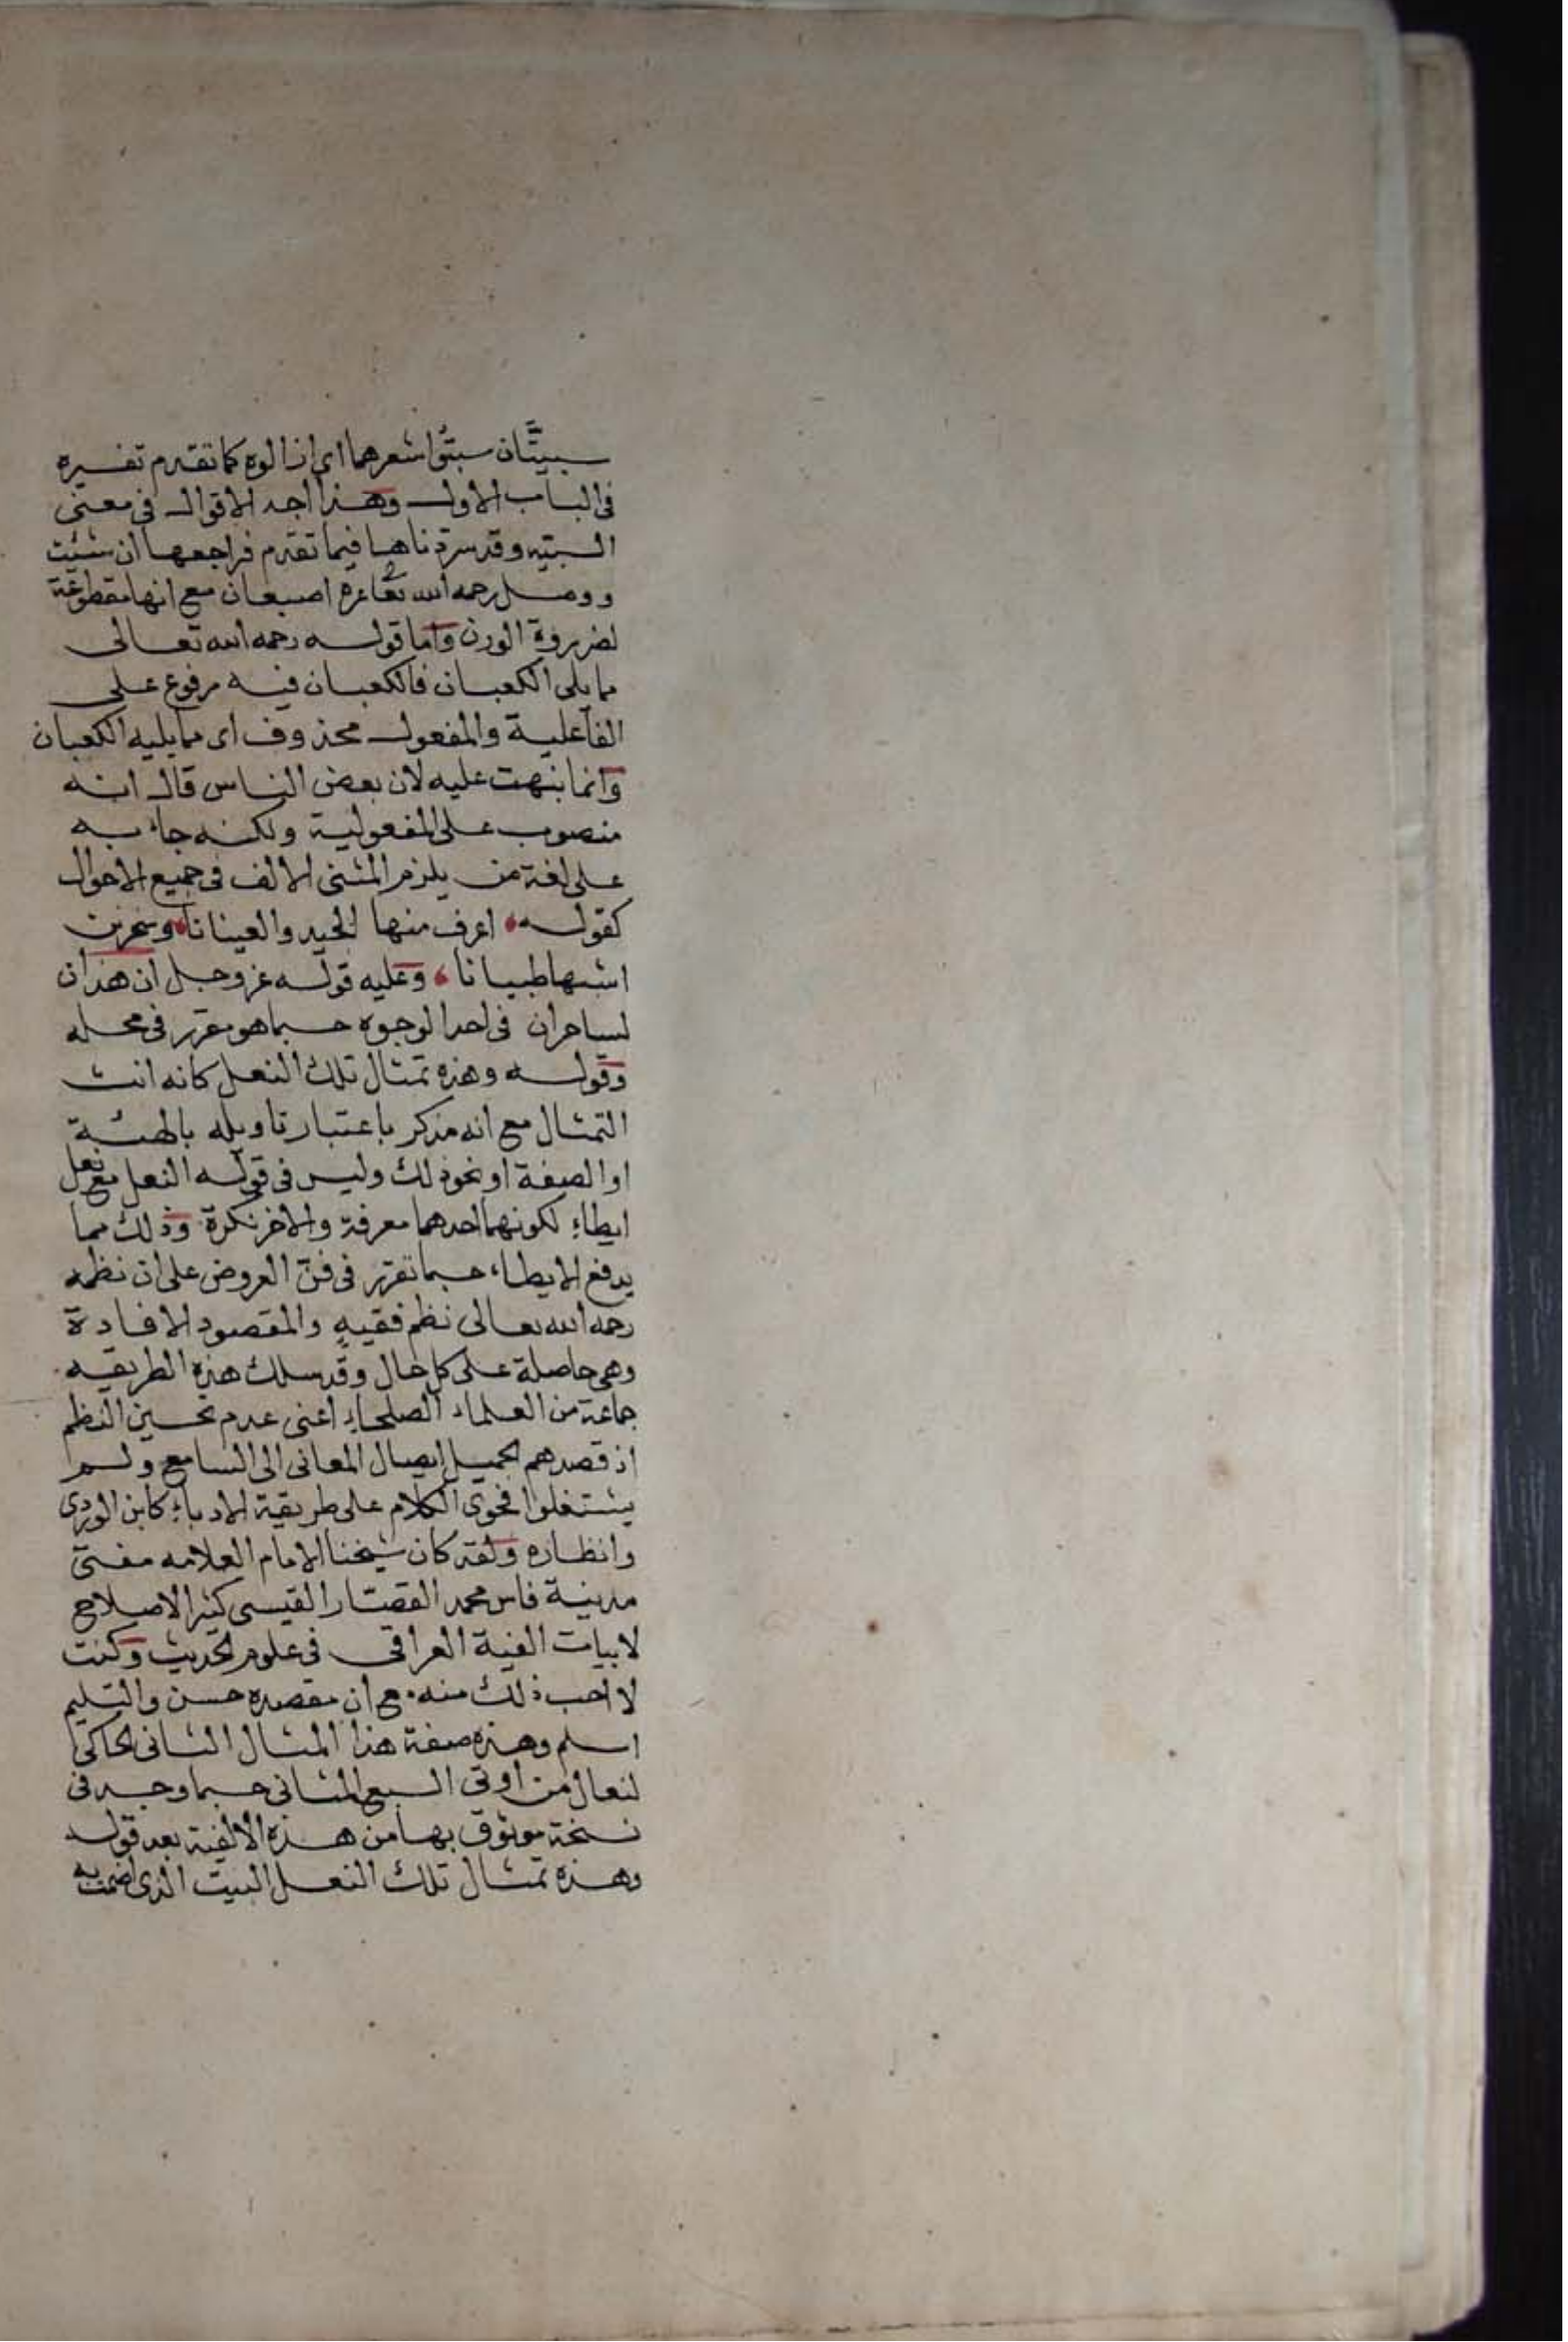 سبتيتان سبتوا شعرهما اي ازالوه كما تقدم تفسيره
في الباب الاول وهذا احد الاقوال في معنى
السبتيه وقد سردناها فيما تقدم فراجعها ان شئت
ووصل رحمه الله تعا عزه اصبعان مع انها مقطوعة
لضرورة الوزن واما قوله رحمه الله تعالى
مما يلى الكعبان فالكعبان فيه مرفوع على
الفاعلية والمفعول محذوف اى مما يليه الكعبان
وانما نبهت عليه لان بعض الناس قال انه
منصوب على المفعولية ولكنه جاء به
على لغة من يلزم المثنى الالف في جميع الاحوال
كقوله اعرف منها الجيد والعينانا ومنخرين
اشبها ظبيانا وعليه قوله عز وجل ان هذان
لساحران في احد الوجوه حسبما هو مقرر في محله
وقوله وهذه تمثال تلك النعل كانه انث
التمثال مع انه مذكر باعتبار تاويله بالهيئة
او الصفة او نحو ذلك وليس في قوله النعل مع نعل
ايطاء لكونهما احدهما معرفة والاخر نكرة وذلك مما
يدفع الايطاء حسبما تقرر في فن العروض على ان نظمه
رحمه الله تعالى نظم فقيه والمقصود الافادة
وهى حاصلة على كل حال وقد سلك هذه الطريقه
جماعة من العلماء الصلحاء اعنى عدم تحسين النظم
اذ قصدهم الجميل ايصال المعانى الى السامع ولم
يشتغلوا فحوى الكلام على طريقة الادباء كابن الوردى
وانظاره ولقد كان شيخنا الامام العلامه مفتى
مدينة فاس محمد القصار القيسى كثير الاصلاح
لابيات الفية العراقى في علوم الحديث وكنت
لا احب ذلك منه مع ان مقصده حسن والتسليم
اسلم وهذه صفة هذا المثال الثانى الحاكى
لنعال من اوتى السبع المثانى حسبما وجد فى
نسخة موثوق بها من هذه الالفية بعد قوله
وهذه تمثال تلك النعل البيت الذى